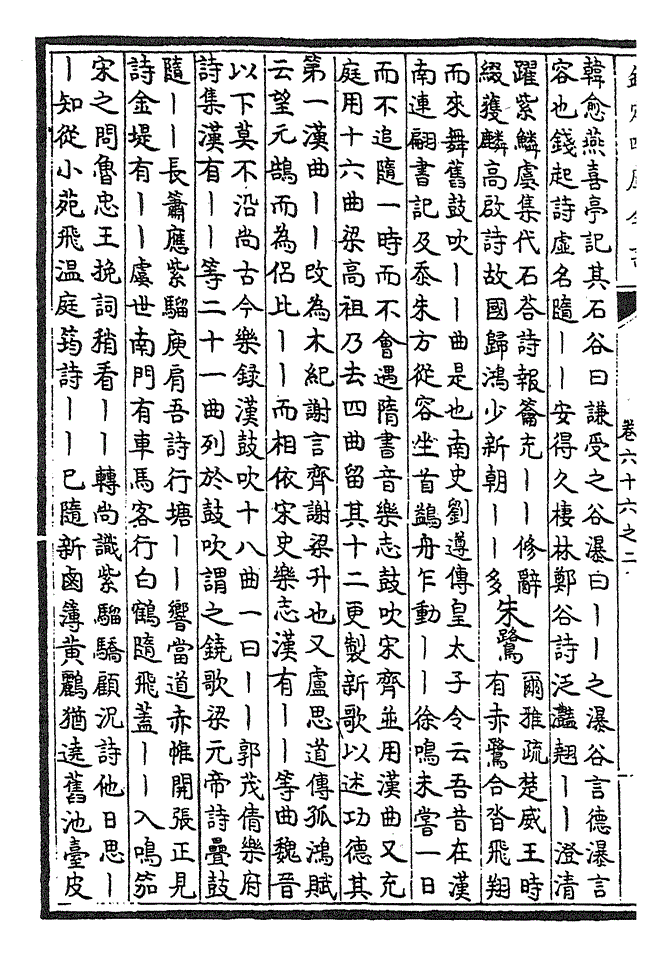 欽定四庫全書
卷六十六之二
韓愈燕喜亭記其石谷曰謙受之谷瀑曰丨丨之瀑谷言德瀑言
容也錢起詩虛名隨丨丨安得久棲林鄭谷詩泛灩翹丨丨澄清
躍紫鱗虞集代石荅詩報籥充丨丨修辭
綴獲麟高啟詩故國歸鴻少新朝丨丨多
朱鷺
爾雅疏楚威王時
有赤鷺合沓飛翔
而來舞舊鼓吹丨丨曲是也南史劉遵傳皇太子令云吾昔在漢
南連翩書記及忝朱方從容坐首鷁舟乍動丨丨徐鳴未嘗一日
而不追隨一時而不會遇隋書音樂志鼓吹宋齊並用漢曲又充
庭用十六曲梁高祖乃去四曲留其十二更製新歌以述功德其
第一漢曲丨丨改為木紀謝言齊謝梁升也又盧思道傳孤鴻賦
云望元鵠而為侶比丨丨而相依宋史樂志漢有丨丨等曲魏晉
以下莫不沿尚古今樂録漢鼓吹十八曲一曰丨丨郭茂倩樂府
詩集漢有丨丨等二十一曲列於鼓吹謂之鐃歌梁元帝詩疊鼓
隨丨丨長簫應紫騮庾肩吾詩行塘丨丨響當道赤帷開張正見
詩金堤有丨丨虞世南門有車馬客行白鶴隨飛蓋丨丨入鳴笳
宋之問魯忠王挽詞稍看丨丨轉尚識紫騮驕顧況詩他日思丨
丨知從小苑飛温庭筠詩丨丨已隨新鹵簿黄鸝猶遶舊池臺皮